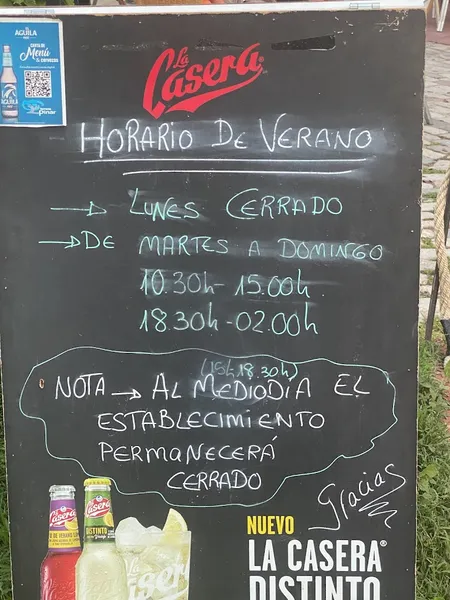 AGUILA
CARTA DE
Menú
& CERVEZAS
La
Casera®
HORARIO DE VERANO
→ LUNES CERRADO
→ DE MARTES A DOMINGO
10.30h - 15.00h
18.30h - 02.00h
(15h, 18.30h)
NOTA → AL MEDIODÍA EL
ESTABLECIMIENTO
PERMANECERÁ
CERRADO
Gracias
NUEVO
LA CASERA®
DISTINTO
La
Casera
La
Casera
DISTINTO
La
Casera